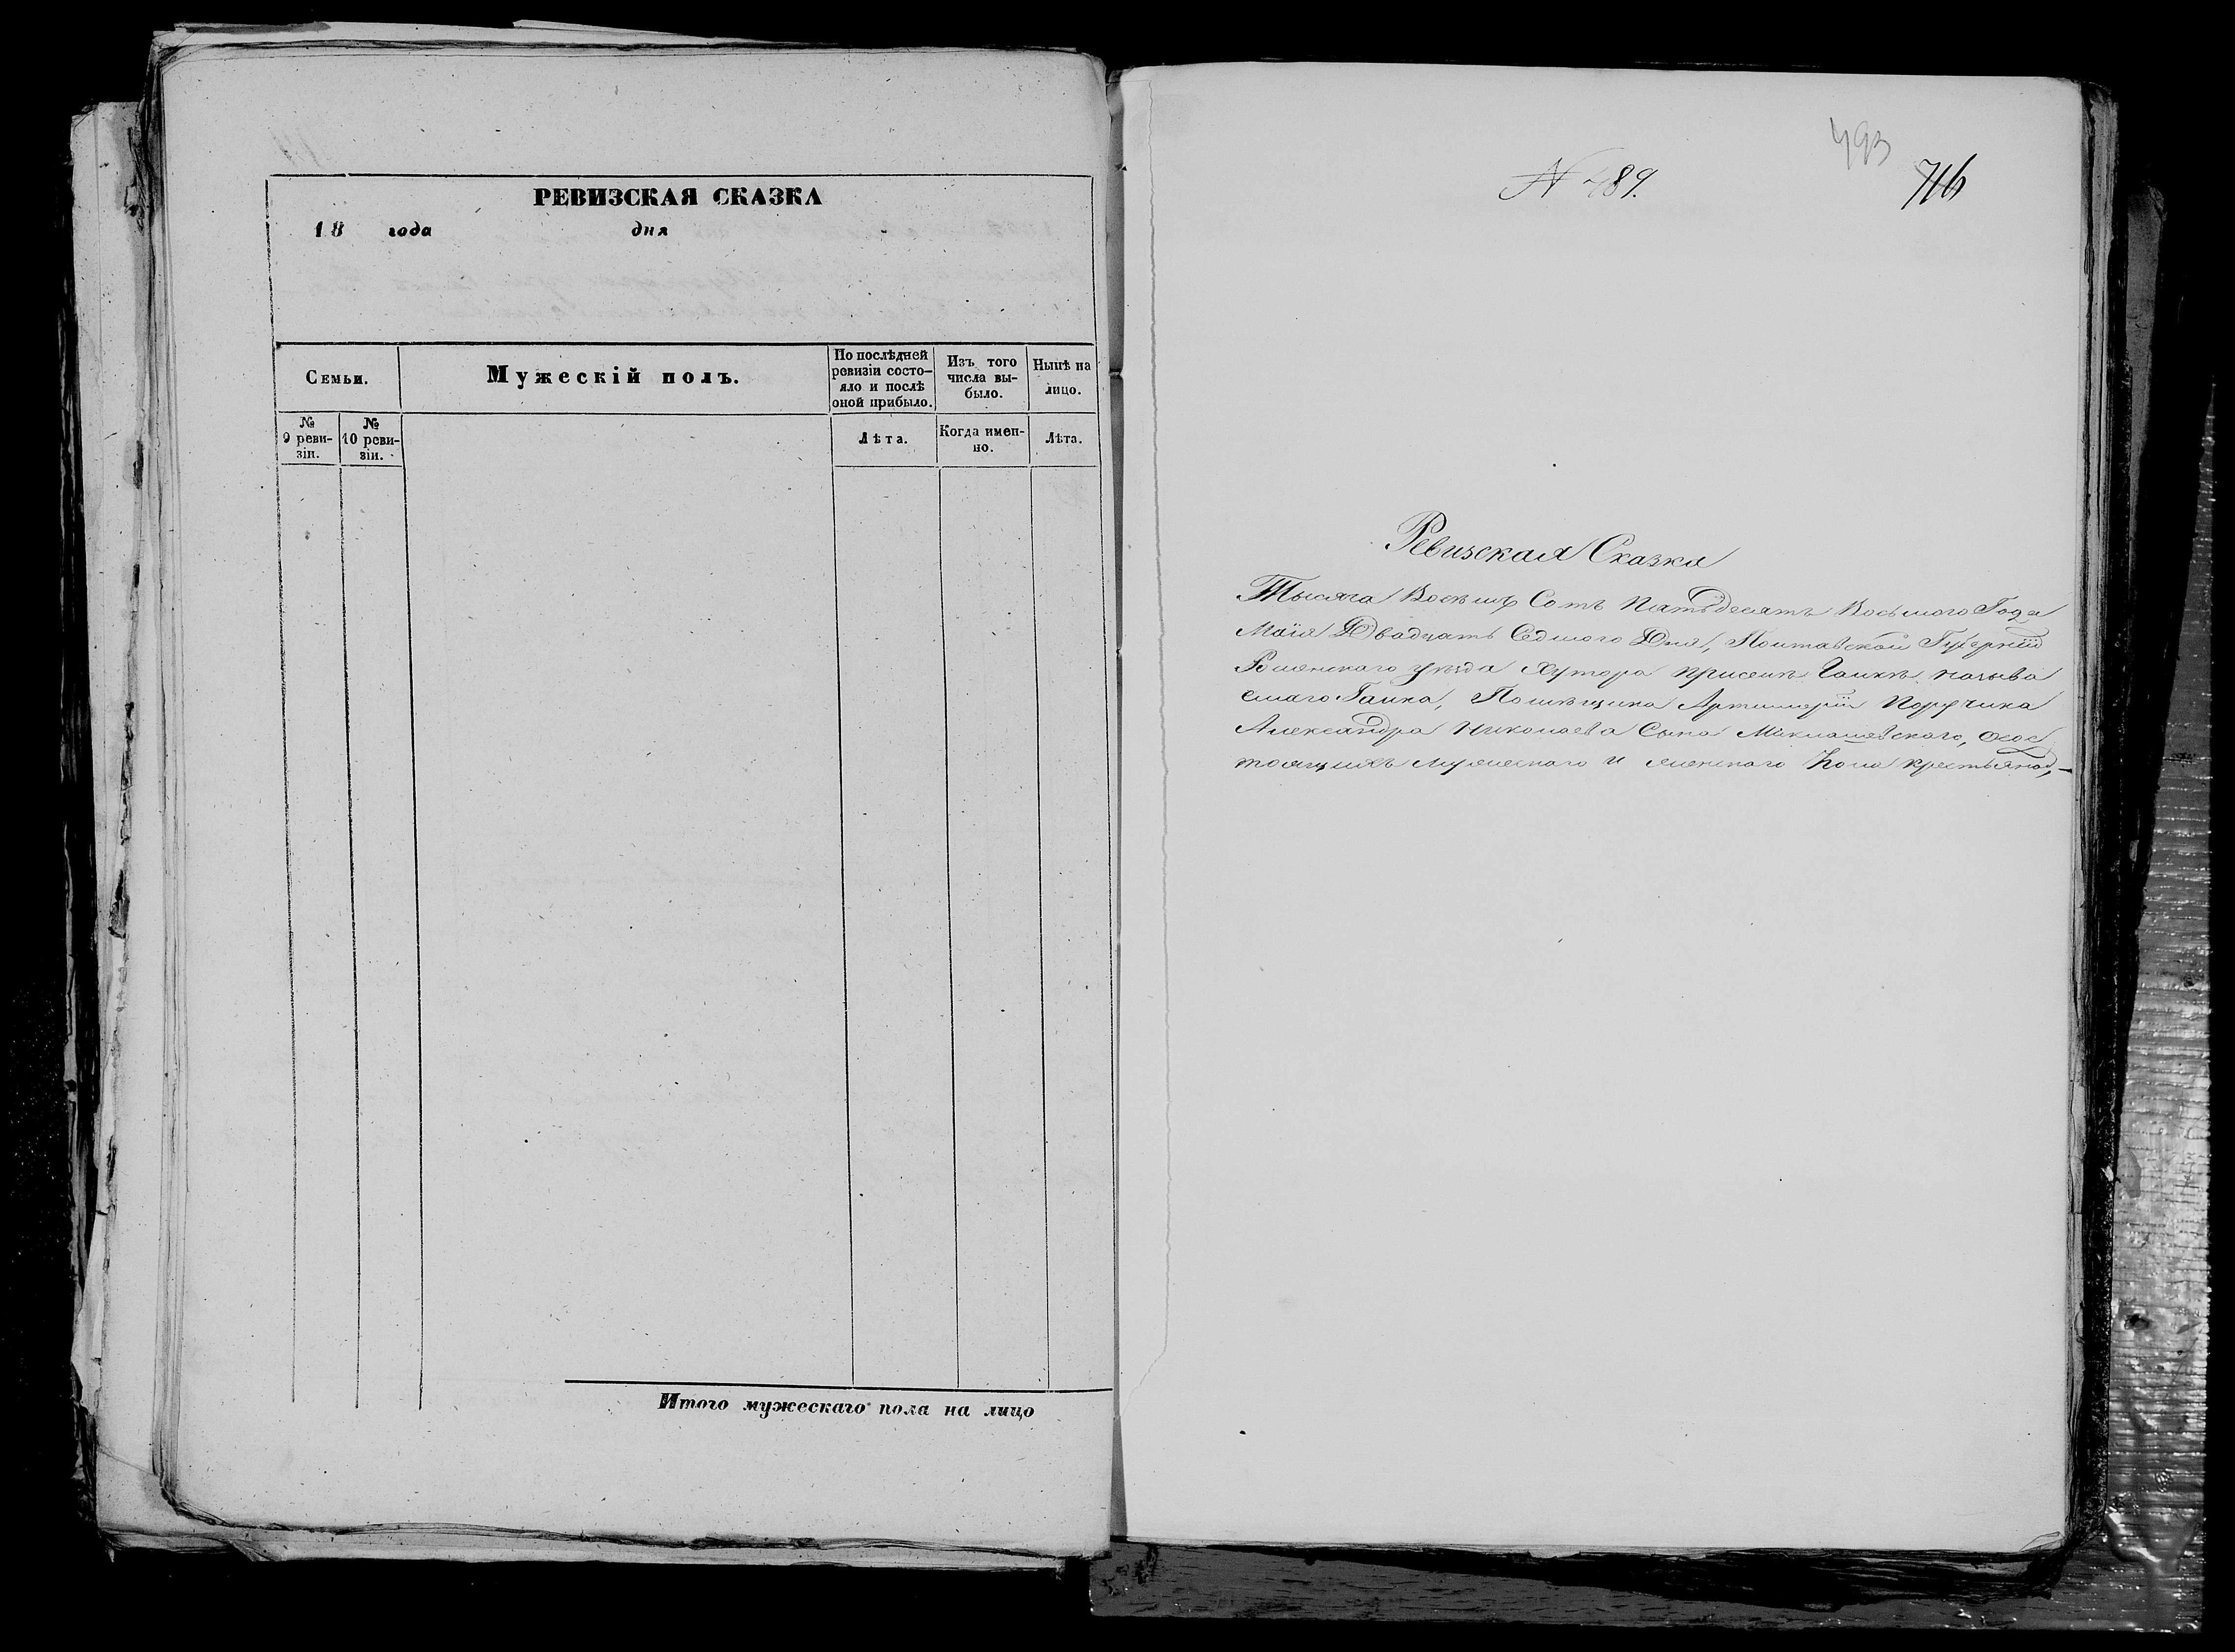 РЕВИЗСКАЯ СКАЗКА
18 года дня
Семьи.
Мужескій полъ.
По послѣдней
ревизіи состо-
яло и послѣ
оной прибыло.
Изъ того
числа вы-
было.
Нынѣ на
лицо.
№
9 реви-
зіи.
№
10 реви-
зіи.
Лѣта.
Когда имен-
но.
Лѣта.
Итого мужескаго пола на лицо
493
N 489.
716
Ревизская Сказка
Тысяча Восемь Сотъ Пятьдесятъ Восьмого Года
Маія Двадцать Седмого Дня, Полтавской Губерніи
Роменского уѣзда Хутора при называ
емаго Гаика, Помѣщика Артилеріи Поручика
Александра Николаева Сына Миклашевского, осос
тоящихъ мужеского и женского Пола крестьянах,-